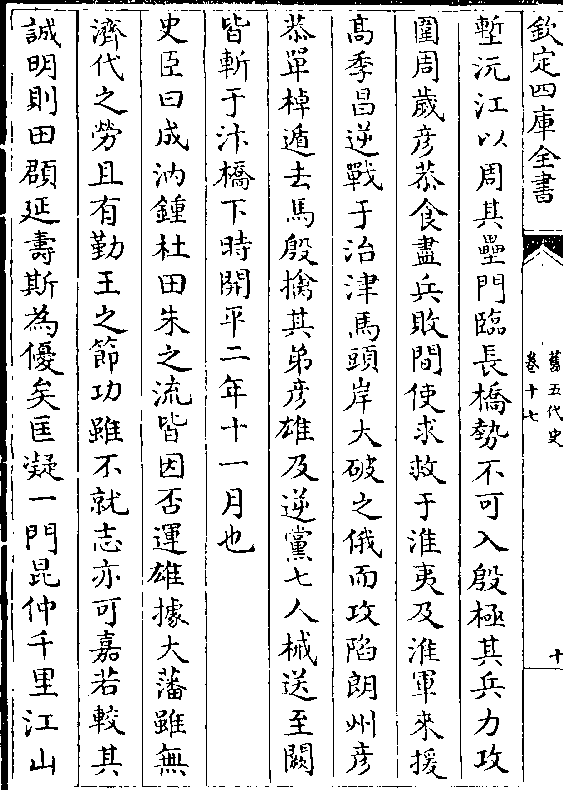 欽定四庫全書
舊五代史
卷十七
十
塹沅江以周其壘門臨長橋勢不可入殷極其兵力攻
圍周歲彦恭食盡兵敗間使求救于淮夷及淮軍來援
髙季昌逆戰于治津馬頭岸大破之俄而攻陷朗州彦
恭單棹遁去馬殷擒其弟彦雄及逆黨七人械送至闕
皆斬于汴橋下時開平二年十一月也
史臣曰成汭鍾杜田朱之流皆因否運雄據大藩雖無
濟代之勞且有勤王之節功雖不就志亦可嘉若較其
誠明則田頵延壽斯為優矣匡凝一門昆仲千里江山